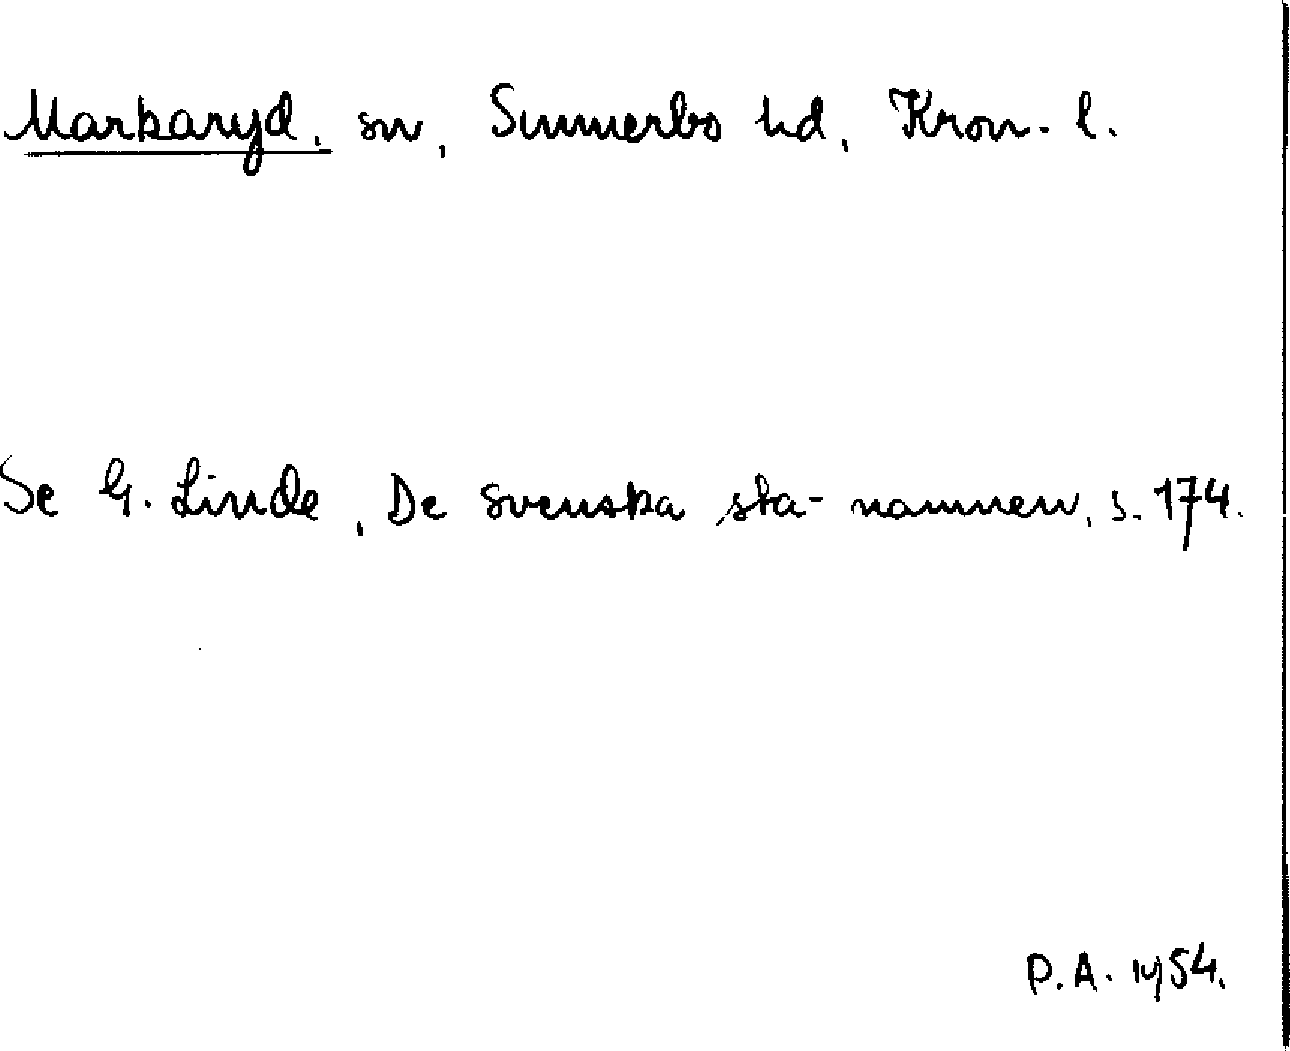 Markaryd, sn, Sunnerbo hd, Kron. l.
Se G. Linde, De svenska sta- namnen, s. 174.
P.A. 54.